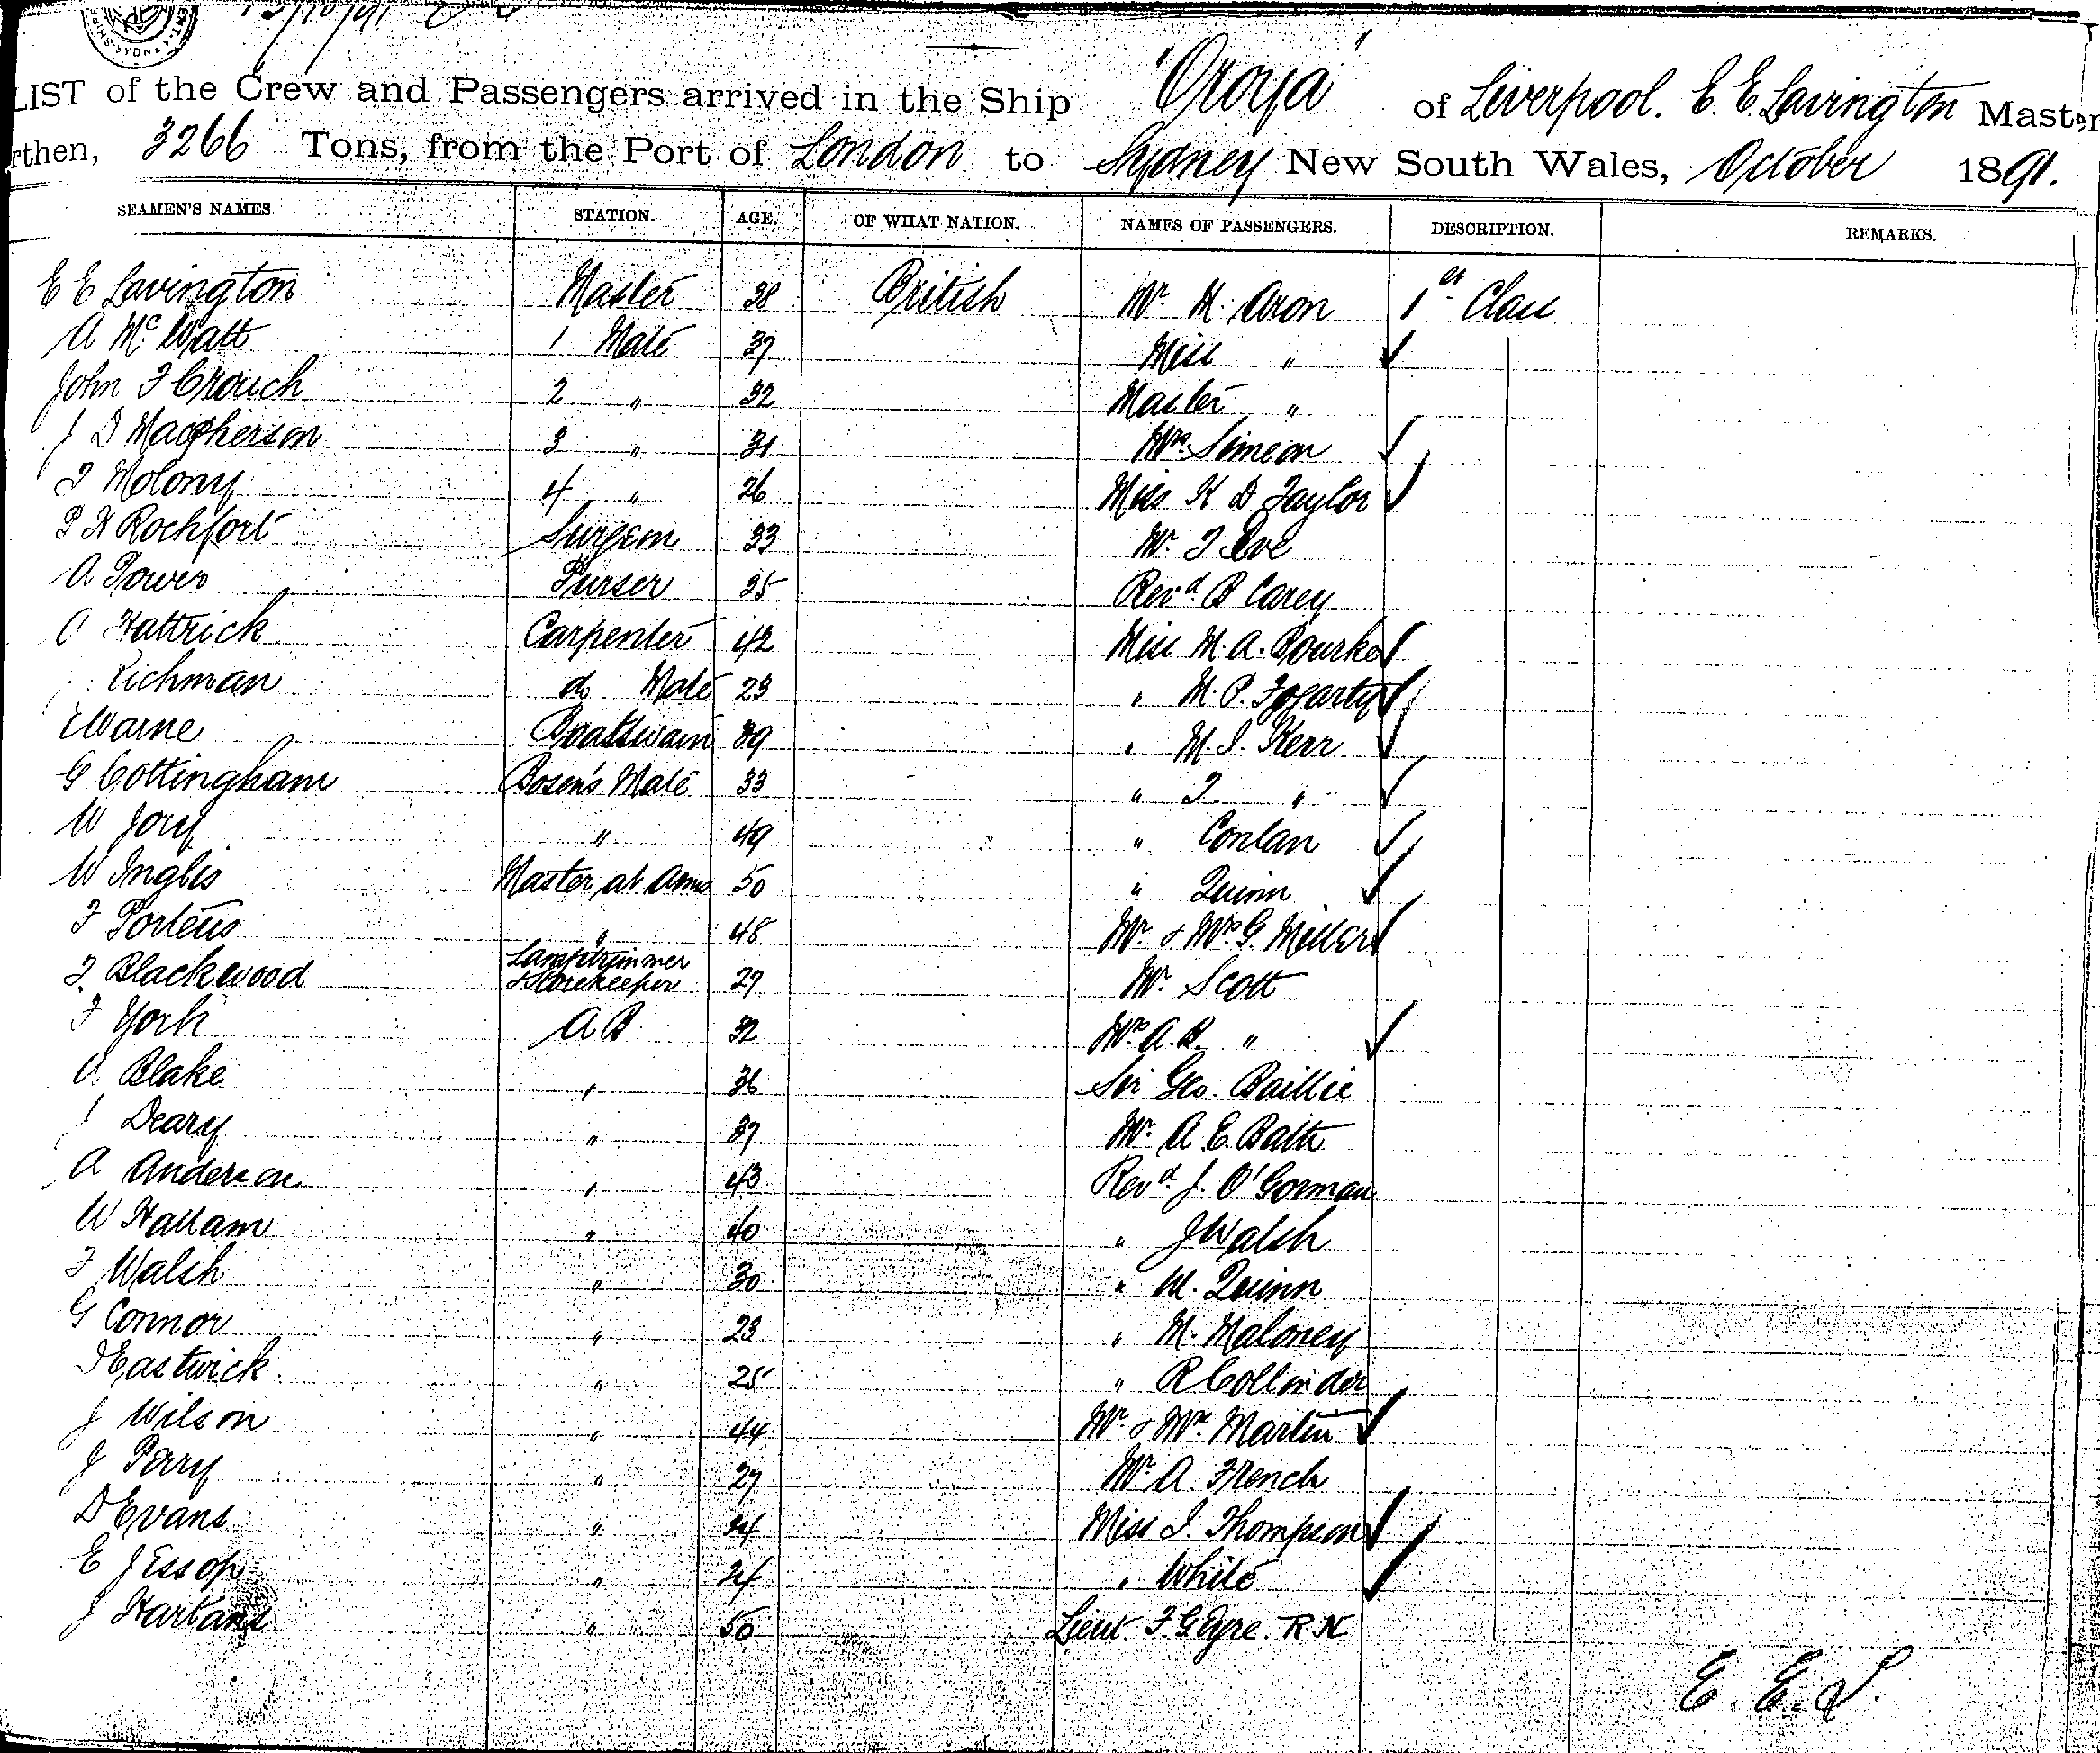 LIST of the Crew and Passengers arrived in the Ship "Oroya" of Liverpool. E. E. Lavington Master
rthen, 3266 Tons, from the Port of London to Sydney New South Wales, October 1891.
SEAMEN'S NAMES STATION. AGE. OF WHAT NATION. NAMES OF PASSENGERS. DESCRIPTION. REMARKS.
E E Lavington Master 38 British Mr. H. Aron 1st Class
A Mc Watt 1 Mate 37 Miss "
John F Crouch 2 " 32 Master "
J D Macpherson 3 " 31 Mrs. Simeon
F Molony 4 " 26 Miss K D Taylor
P H Rochfort Surgeon 33 Mr. J. Eve
A Power Purser 35 Revd. B Carey
Hattrick Carpenter 42 Miss M. A. Bourke
Richman do Mate 23 " M. P. Fogarty
E Warne Boatswain 39 " M. J. Kerr
G Cottingham Bosen's Mate 33 " J. "
W Jory " 49 " Conlan
W Inglis Master at Arms 50 " Quinn
F Porteus " 48 Mr. & Mrs G. Miller
F. Blackwood Lamptrimmer & Storekeeper 27 Mr. Scott
F York A B 32 Mrs A. B. "
A Blake " 36 Sir Geo. Baillie
J Deary " 37 Mr. A E. Batt
A Anderson " 43 Revd. J. O'Gorman
W Hallam " 40 " J Walsh
F Walsh " 30 " M. Quinn
G Connor " 23 " M. Maloney
J Eastwick " 25 " R Collinder
J Wilson " 44 Mr. & Mrs. Martin
J Perry " 27 Mr. A. French
D Evans " 24 Miss J. Thompson
E Jessop " 24 " White
J Hartand " 50 Lieut. F. G Eyre. R N
E. E. L.